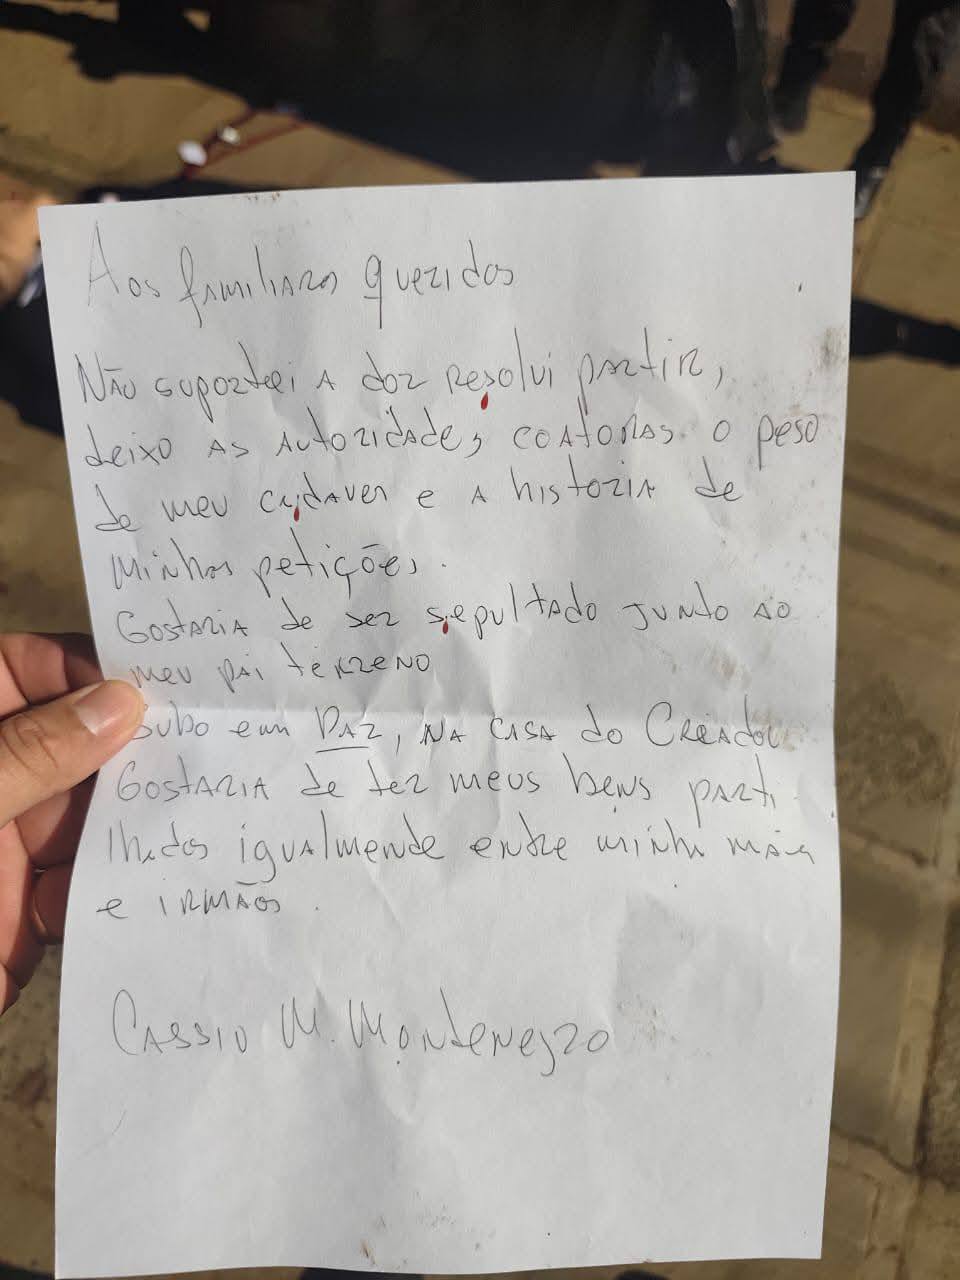 Aos familiares queridos
Não suportei a dor resolvi partir,
deixo as autoridades coatoras o peso
de meu cadaver e a historia de
minhas petições.
Gostaria de ser sepultado junto ao
meu pai terreno
Subo em Paz, na casa do Creador
Gostaria de ter meus bens parti
lhados igualmende entre minha mãe
e irmãos.
Cassio M. Montenegro